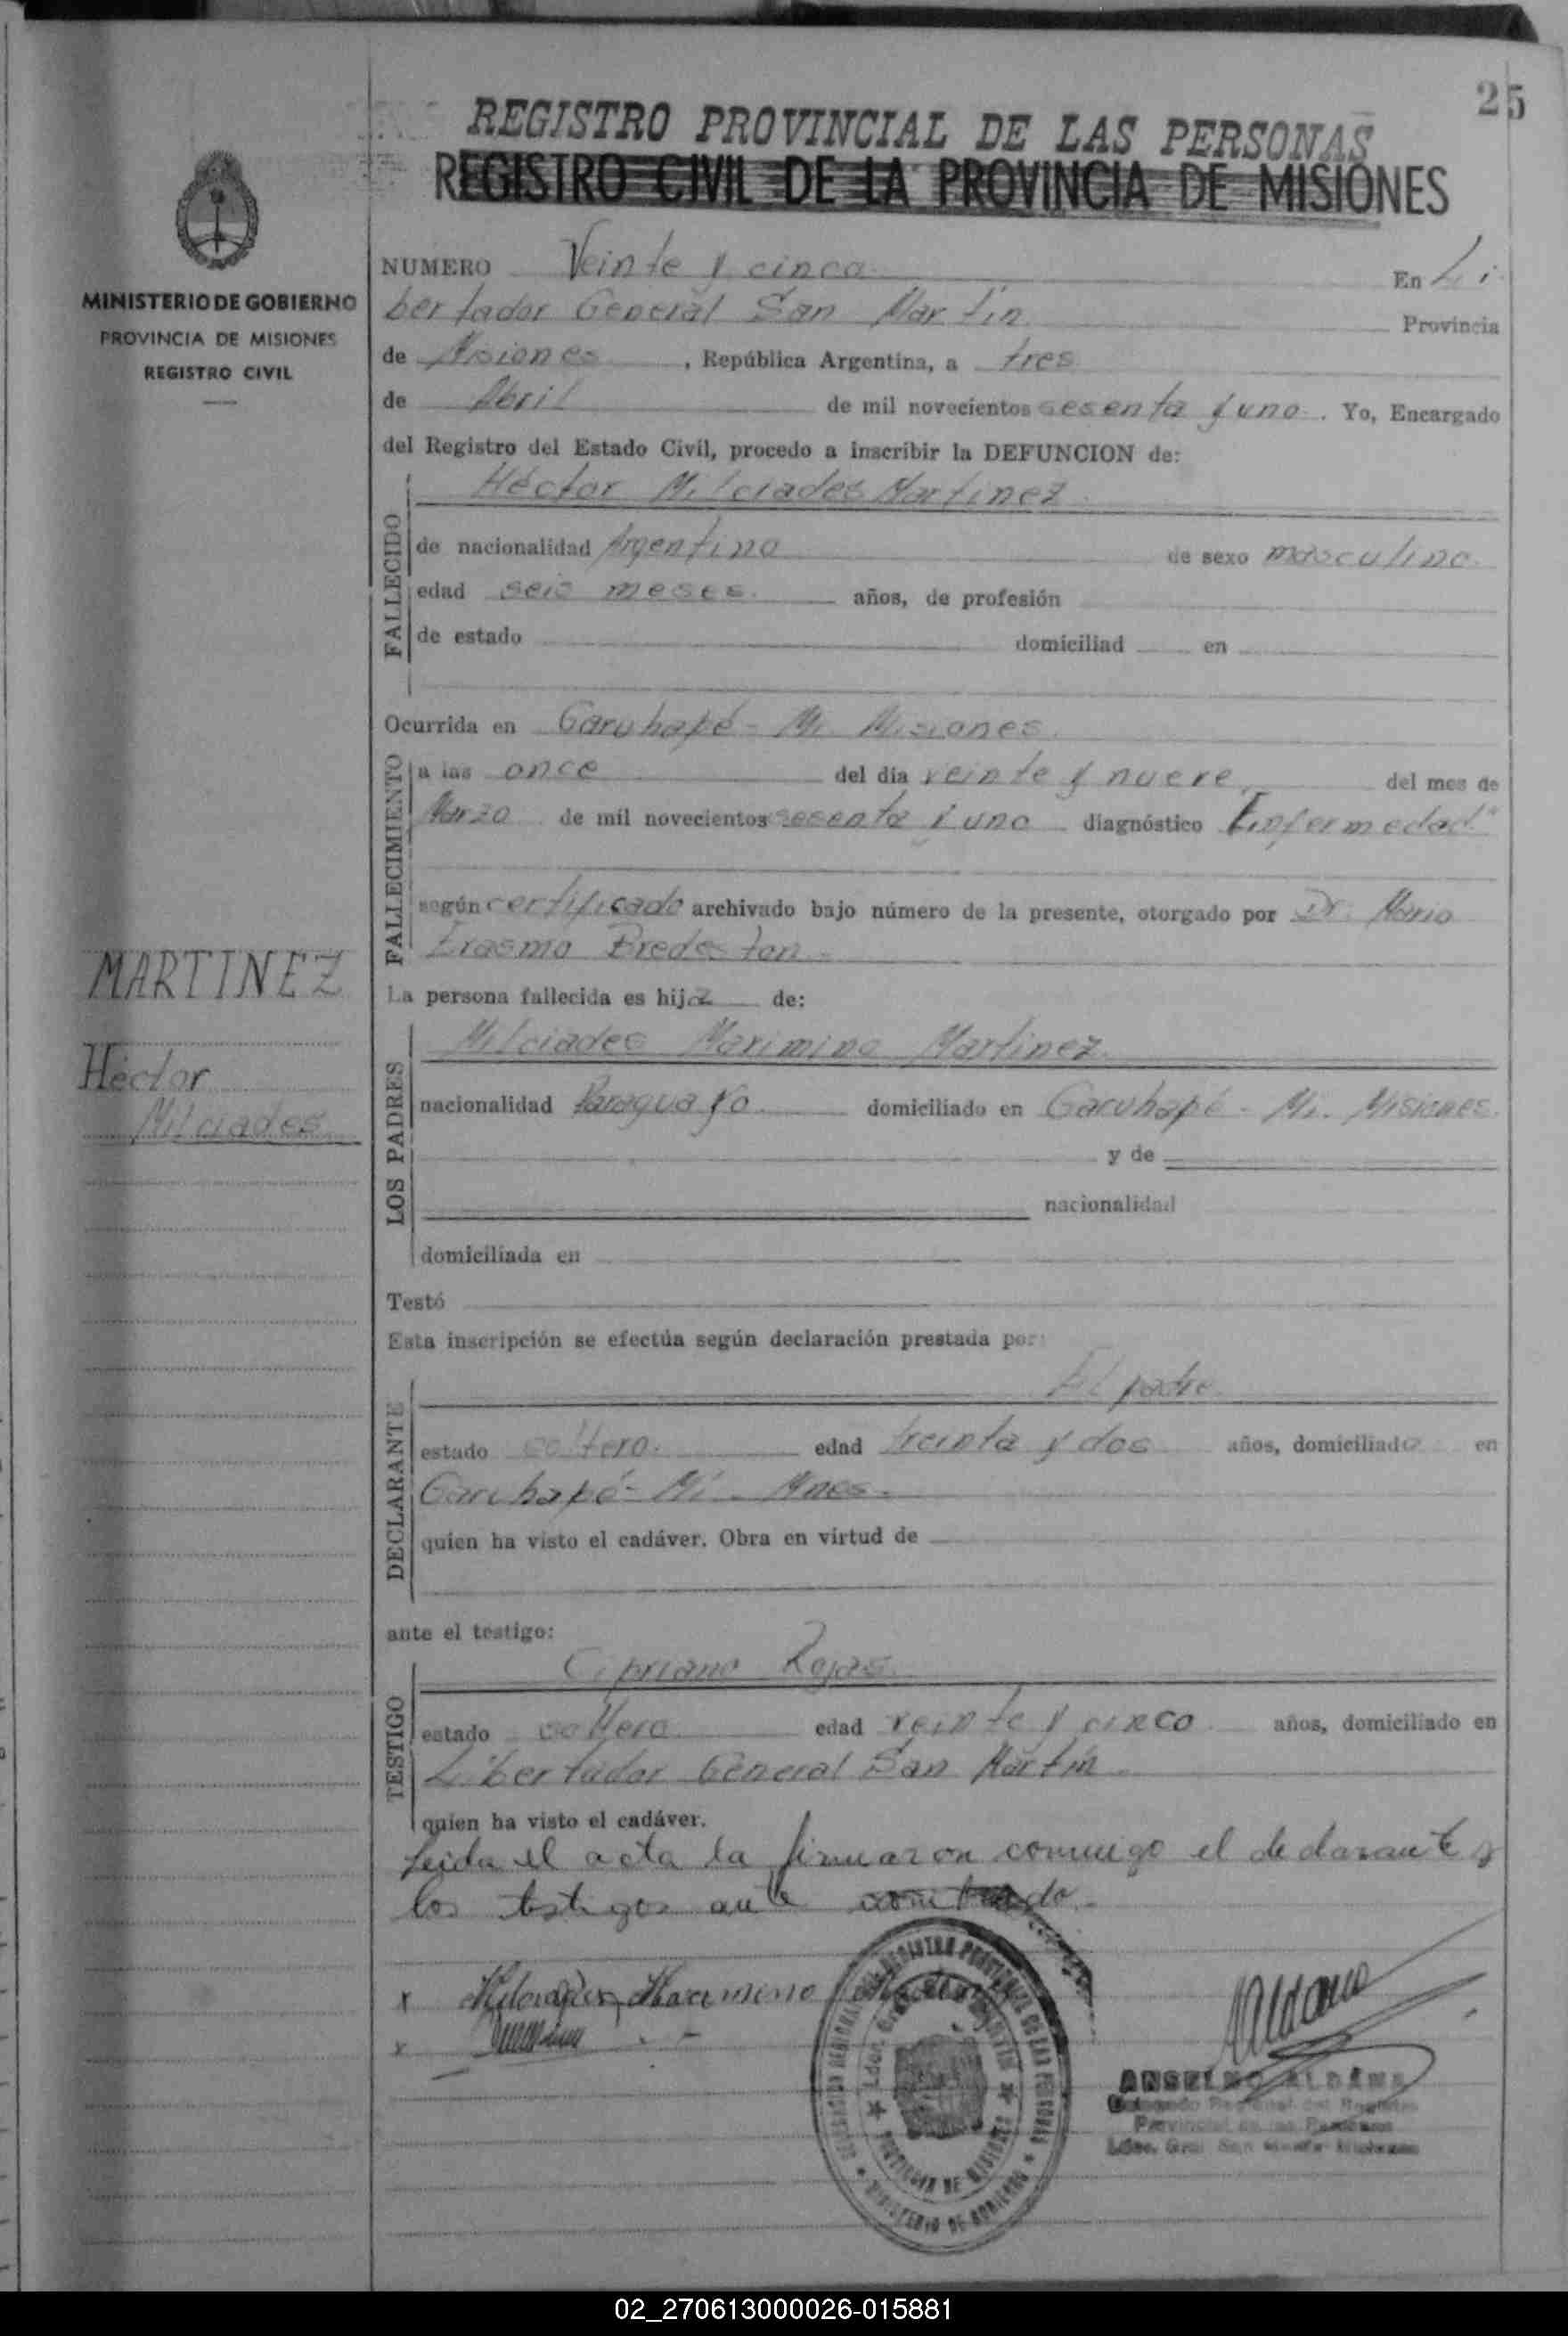 25
REGISTRO PROVINCIAL DE LAS PERSONAS
REGISTRO CIVIL DE LA PROVINCIA DE MISIONES
MINISTERIO DE GOBIERNO
PROVINCIA DE MISIONES
REGISTRO CIVIL
NUMERO Veinte y cinco En Li
bertador General San Martín Provincia
de Misiones, República Argentina, a tres
de Abril de mil novecientos sesenta y uno. Yo, Encargado
del Registro del Estado Civil, procedo a inscribir la DEFUNCION de:
Héctor Milciades Martinez
FALLECIDO
de nacionalidad Argentino de sexo masculino
edad seis meses. años, de profesión
de estado domiciliad en
Ocurrida en Garuhapé - Mi. Misiones.
FALLECIMIENTO
a las once del día veinte y nueve del mes de
Marzo de mil novecientos sesenta y uno diagnóstico "Enfermedad"
según certificado archivado bajo número de la presente, otorgado por Dr. Mario
Erasmo
MARTINEZ
Héctor
Milciades
La persona fallecida es hijo de:
LOS PADRES
Milciades Maximino Martinez
nacionalidad Paraguayo domiciliado en Garuhapé - Mi. Misiones.
y de
nacionalidad
domiciliada en
Testó
Esta inscripción se efectúa según declaración prestada por:
DECLARANTE
El padre
estado soltero. edad treinta y dos años, domiciliado en
Garuhapé - Mi. Mnes.
quien ha visto el cadáver. Obra en virtud de
ante el testigo:
TESTIGO
Cipriano Rojas
estado soltero edad veinte y cinco años, domiciliado en
Libertador General San Martín.
quien ha visto el cadáver.
Leida el acta la firmaron conmigo el declarante y
los testigos ante
x Milciades Maximino
x
Aldana
ANSELMO ALDANA
Provincial de las Personas
Ldor. Gral San Martín Misiones
DEL REGISTRO PROVINCIAL DE LAS PERSONAS
Ldor. Gral. SAN MARTIN
PROVINCIA DE MISIONES
MINISTERIO DE GOBIERNO
02_270613000026-015881